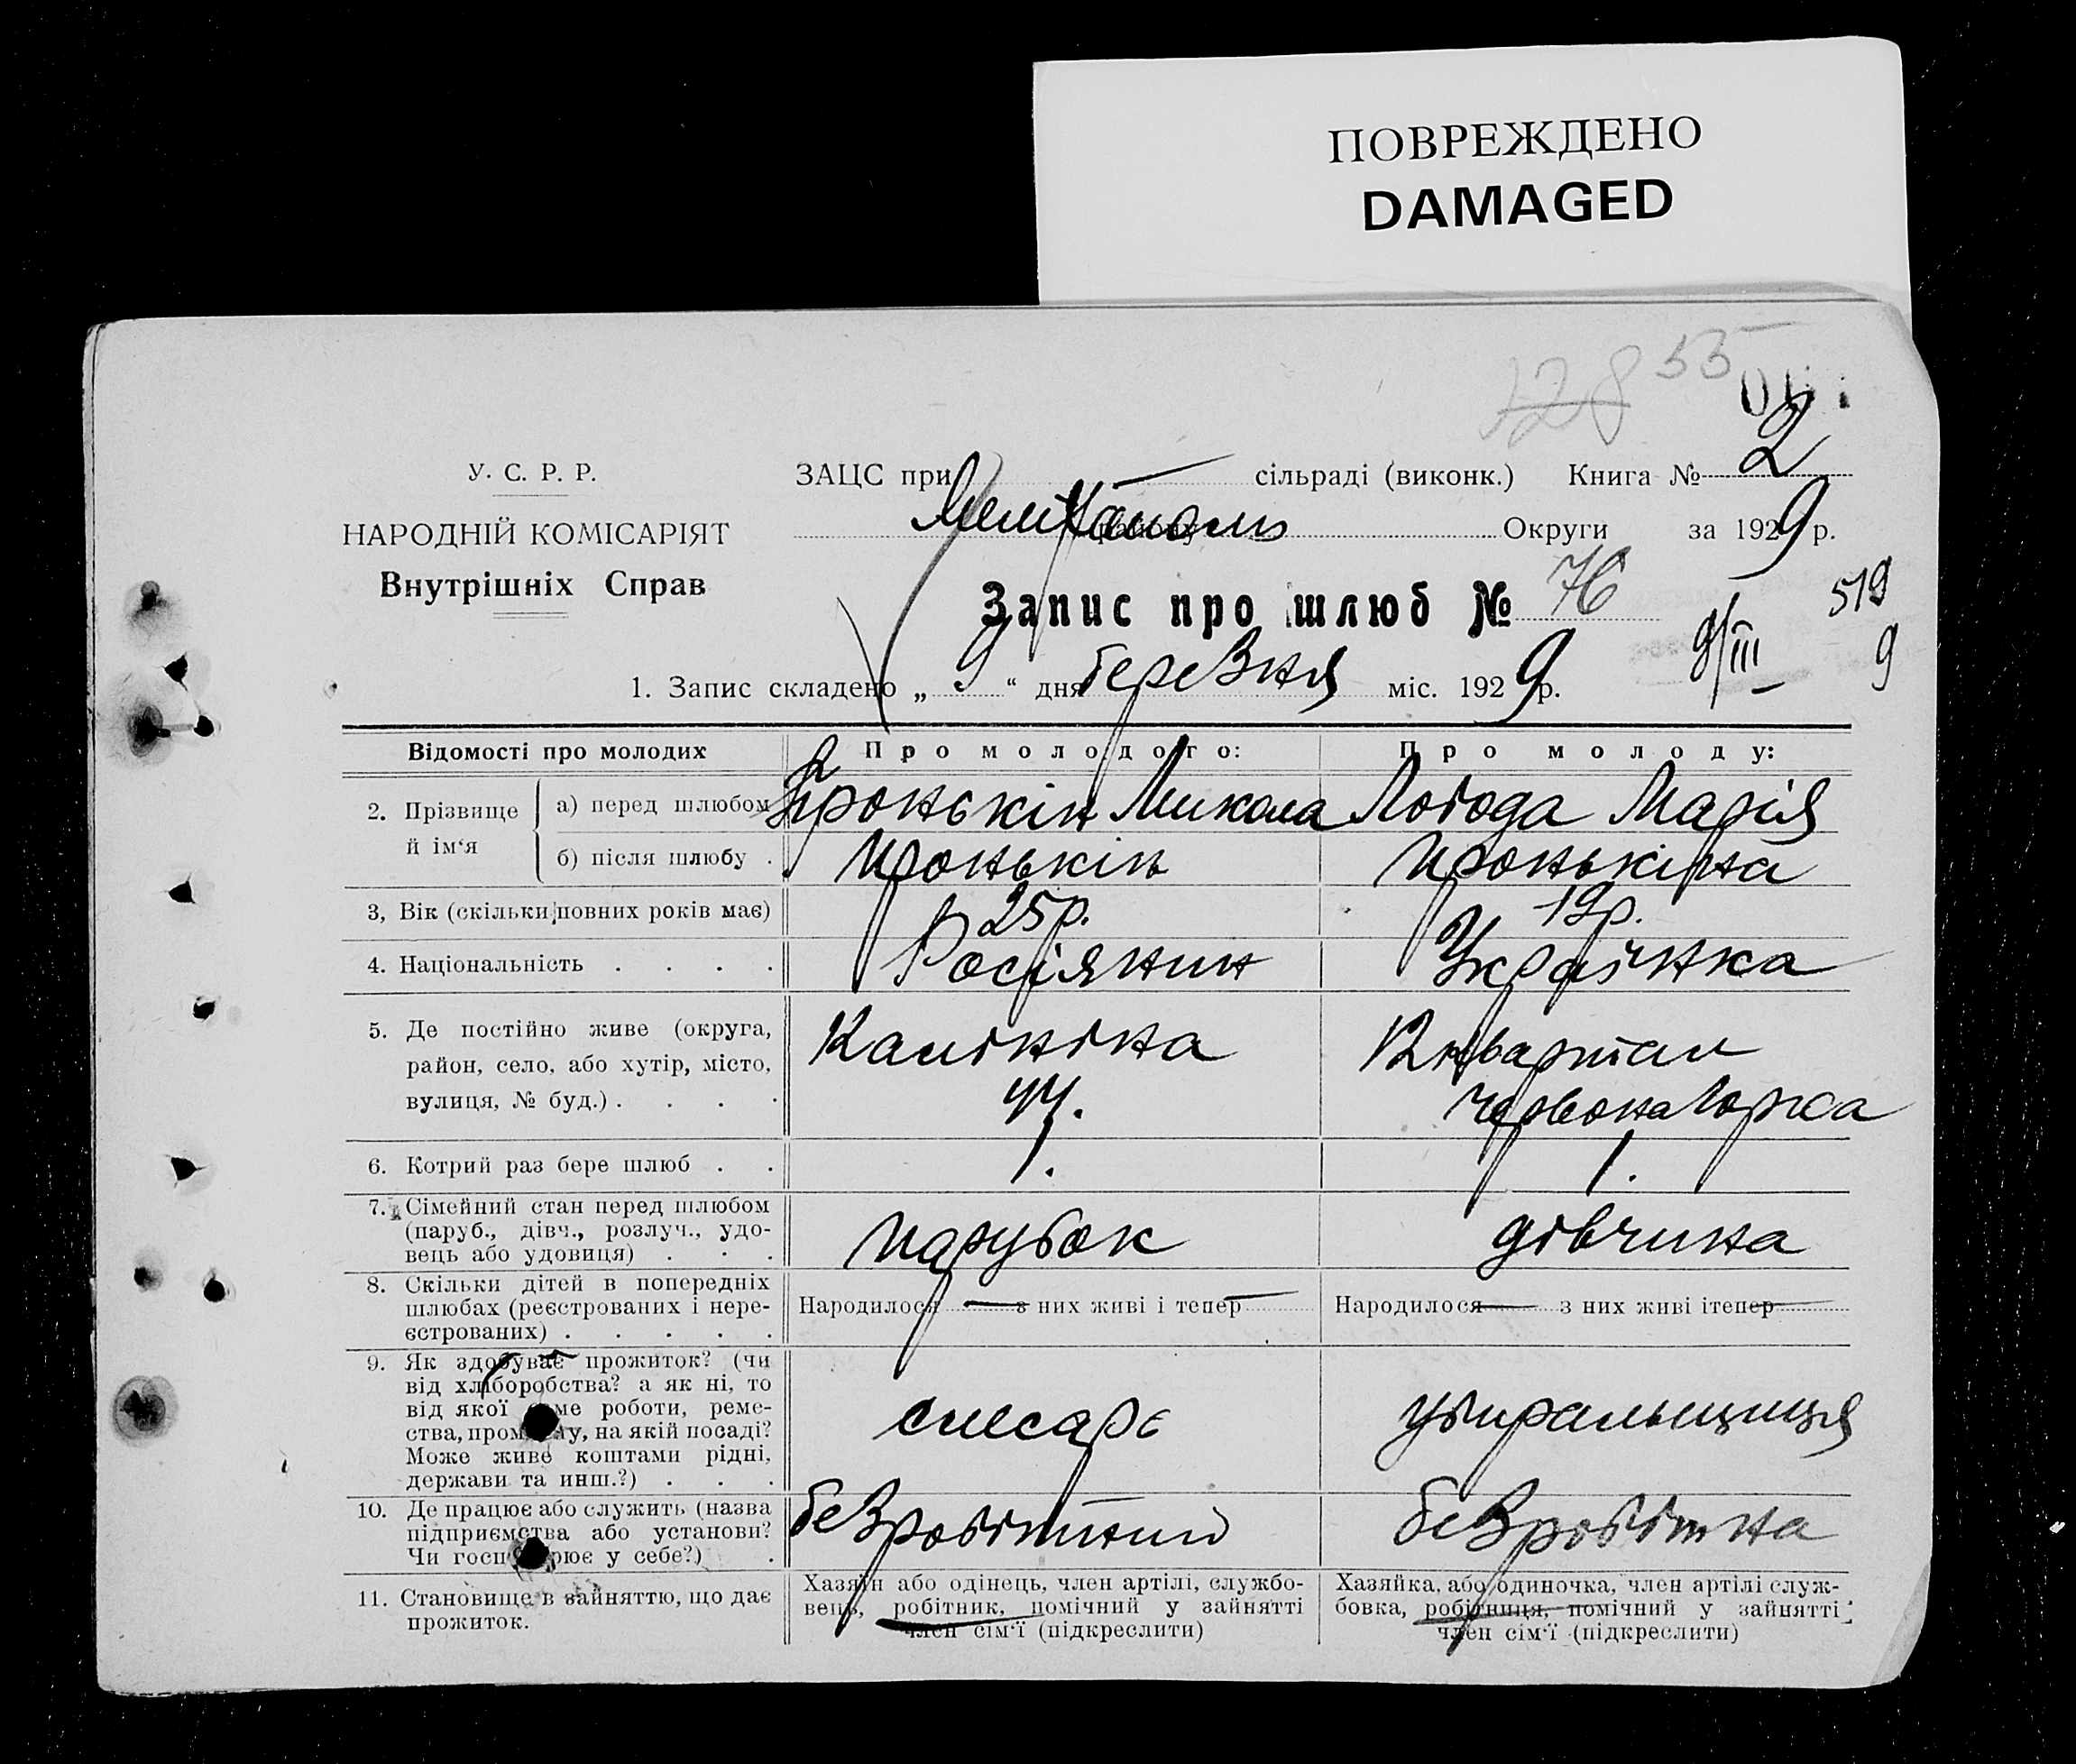 ПОВРЕЖДЕНО
DAMAGED
128 55
У. С. Р. Р.
НАРОДНІЙ КОМІСАРІЯТ
Внутрішніх Справ
ЗАЦС при сільраді (виконк.) Книга № 2
Мелітополь району Округи за 1929 р.
Запис про шлюб № 76
519
9/III 9
1. Запис складено „ 9 “ дня березня міс. 1929 р.
Відомості про молодих Про молодого: Про молоду:
2. Прізвище й ім‘я
а) перед шлюбом Пронькін Микола Логода Марія
б) після шлюбу . Пронькін Пронькіна
3, Вік (скільки повних років має) 25р. 19р.
4. Національність . . . . Росіянин Українка
5. Де постійно живе (округа,
район, село, або хутір, місто,
вулиця, № буд.) . . . .
Калініна
44.
12 квартал
Червона Горка
6. Котрий раз бере шлюб . . 1. 1.
7. Сімейний стан перед шлюбом
(паруб., дівч., розлуч., удо-
вець або удовиця) . . .
парубок дівчина
8. Скільки дітей в попередніх
шлюбах (реєстрованих і нере-
єстрованих) . . . . .
Народилося — з них живі і тепер —
Народилося — з них живі ітепер —
9. Як здобуває прожиток? (чи
від хліборобства? а як ні, то
від якої роботи, реме-
ства, на якій посаді?
Може живе коштами рідні,
держави та инш.?) . . .
слесарь убиральщиця
10. Де працює або служить (назва
підприємства або установи?
Чи у себе?) .
безробітний безробітна
11. Становище в зайняттю, що дає
прожиток.
Хазяїн або одінець, член артілі, службо-
вець, робітник, помічний у зайнятті
член сім‘ї (підкреслити)
Хазяйка, або одиночка, член артілі служ-
бовка, робітниця, помічний у зайнятті
член сім‘ї (підкреслити)